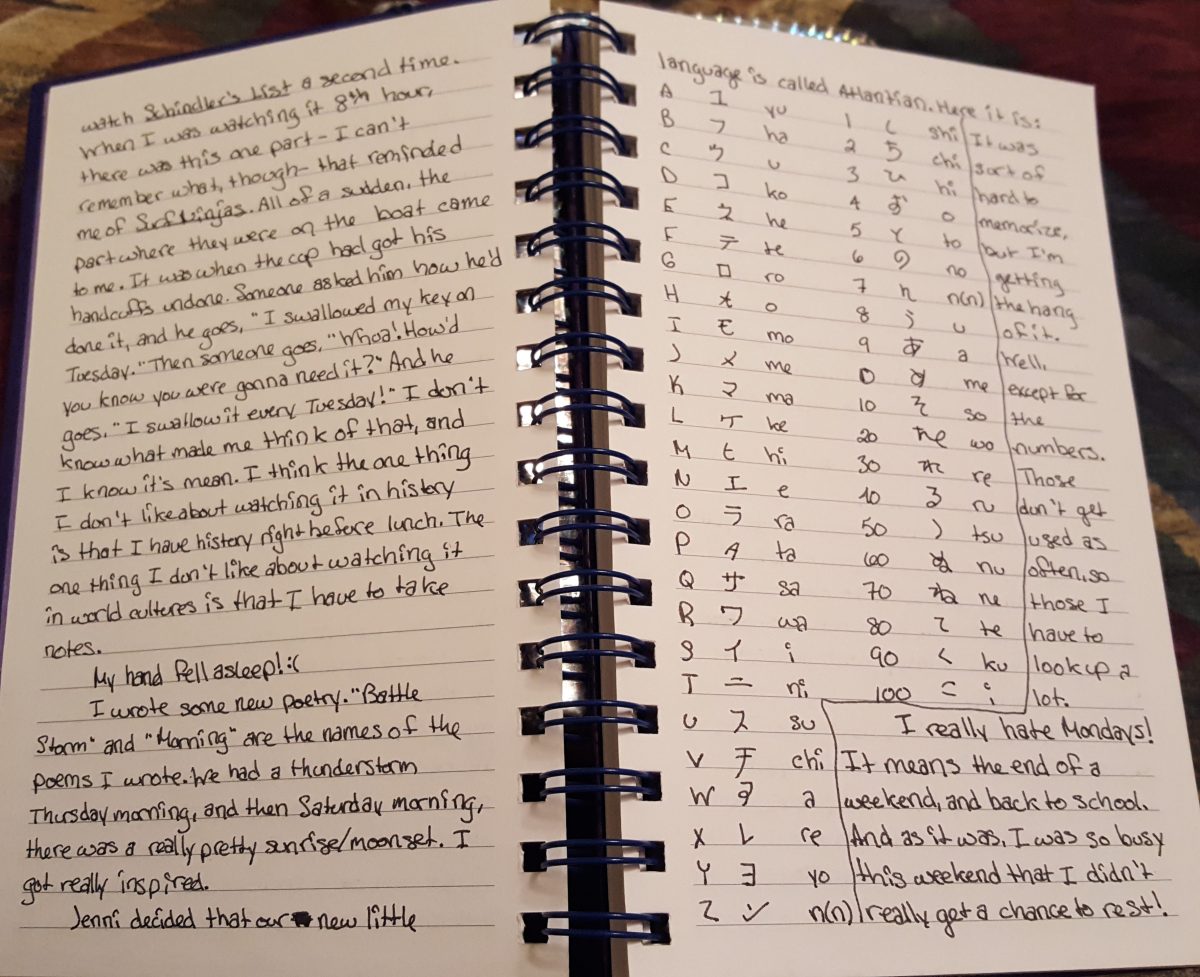 watch Schindler's List a second time.
When I was watching it 8th hour,
there was this one part - I can't
remember what, though - that reminded
me of Surf Ninjas. All of a sudden, the
part where they were on the boat came
to me. It was when the cop had got his
handcuffs undone. Someone asked him how he'd
done it, and he goes, "I swallowed my key on
Tuesday." Then someone goes, "Whoa! How'd
you know you were gonna need it?" And he
goes, "I swallow it every Tuesday!" I don't
know what made me think of that, and
I know it's mean. I think the one thing
I don't like about watching it in history
is that I have history right before lunch. The
one thing I don't like about watching it
in world cultures is that I have to take
notes.
My hand fell asleep! :(
I wrote some new poetry. "Battle
Storm" and "Morning" are the names of the
poems I wrote. We had a thunderstorm
Thursday morning, and then Saturday morning,
there was a really pretty sunrise/moonset. I
got really inspired.
Jenni decided that our new little
language is called Atlantian. Here it is:
A ユ yu
B フ ha
C ウ u
D コ ko
E ヌ he
F テ te
G ロ ro
H オ o
I モ mo
J メ me
K マ ma
L ケ ke
M ヒ hi
N エ e
O ラ ra
P タ ta
Q サ sa
R ワ wa
S イ i
T ニ ni
U ス su
V チ chi
W ア a
X レ re
Y ヨ yo
Z ン n(n)
1 し shi
2 ち chi
3 ひ hi
4 お o
5 と to
6 の no
7 ん n(n)
8 う u
9 あ a
0 め me
10 そ so
20 を wo
30 れ re
10 る ru
50 つ tsu
60 ぬ nu
70 ね ne
80 て te
90 く ku
100 こ i
It was
sort of
hard to
memorize,
but I'm
getting
the hang
of it.
Well,
except for
the
numbers.
Those
don't get
used as
often, so
those I
have to
look up a
lot.
I really hate Mondays!
It means the end of a
weekend, and back to school.
And as it was, I was so busy
this weekend that I didn't
really get a chance to rest!